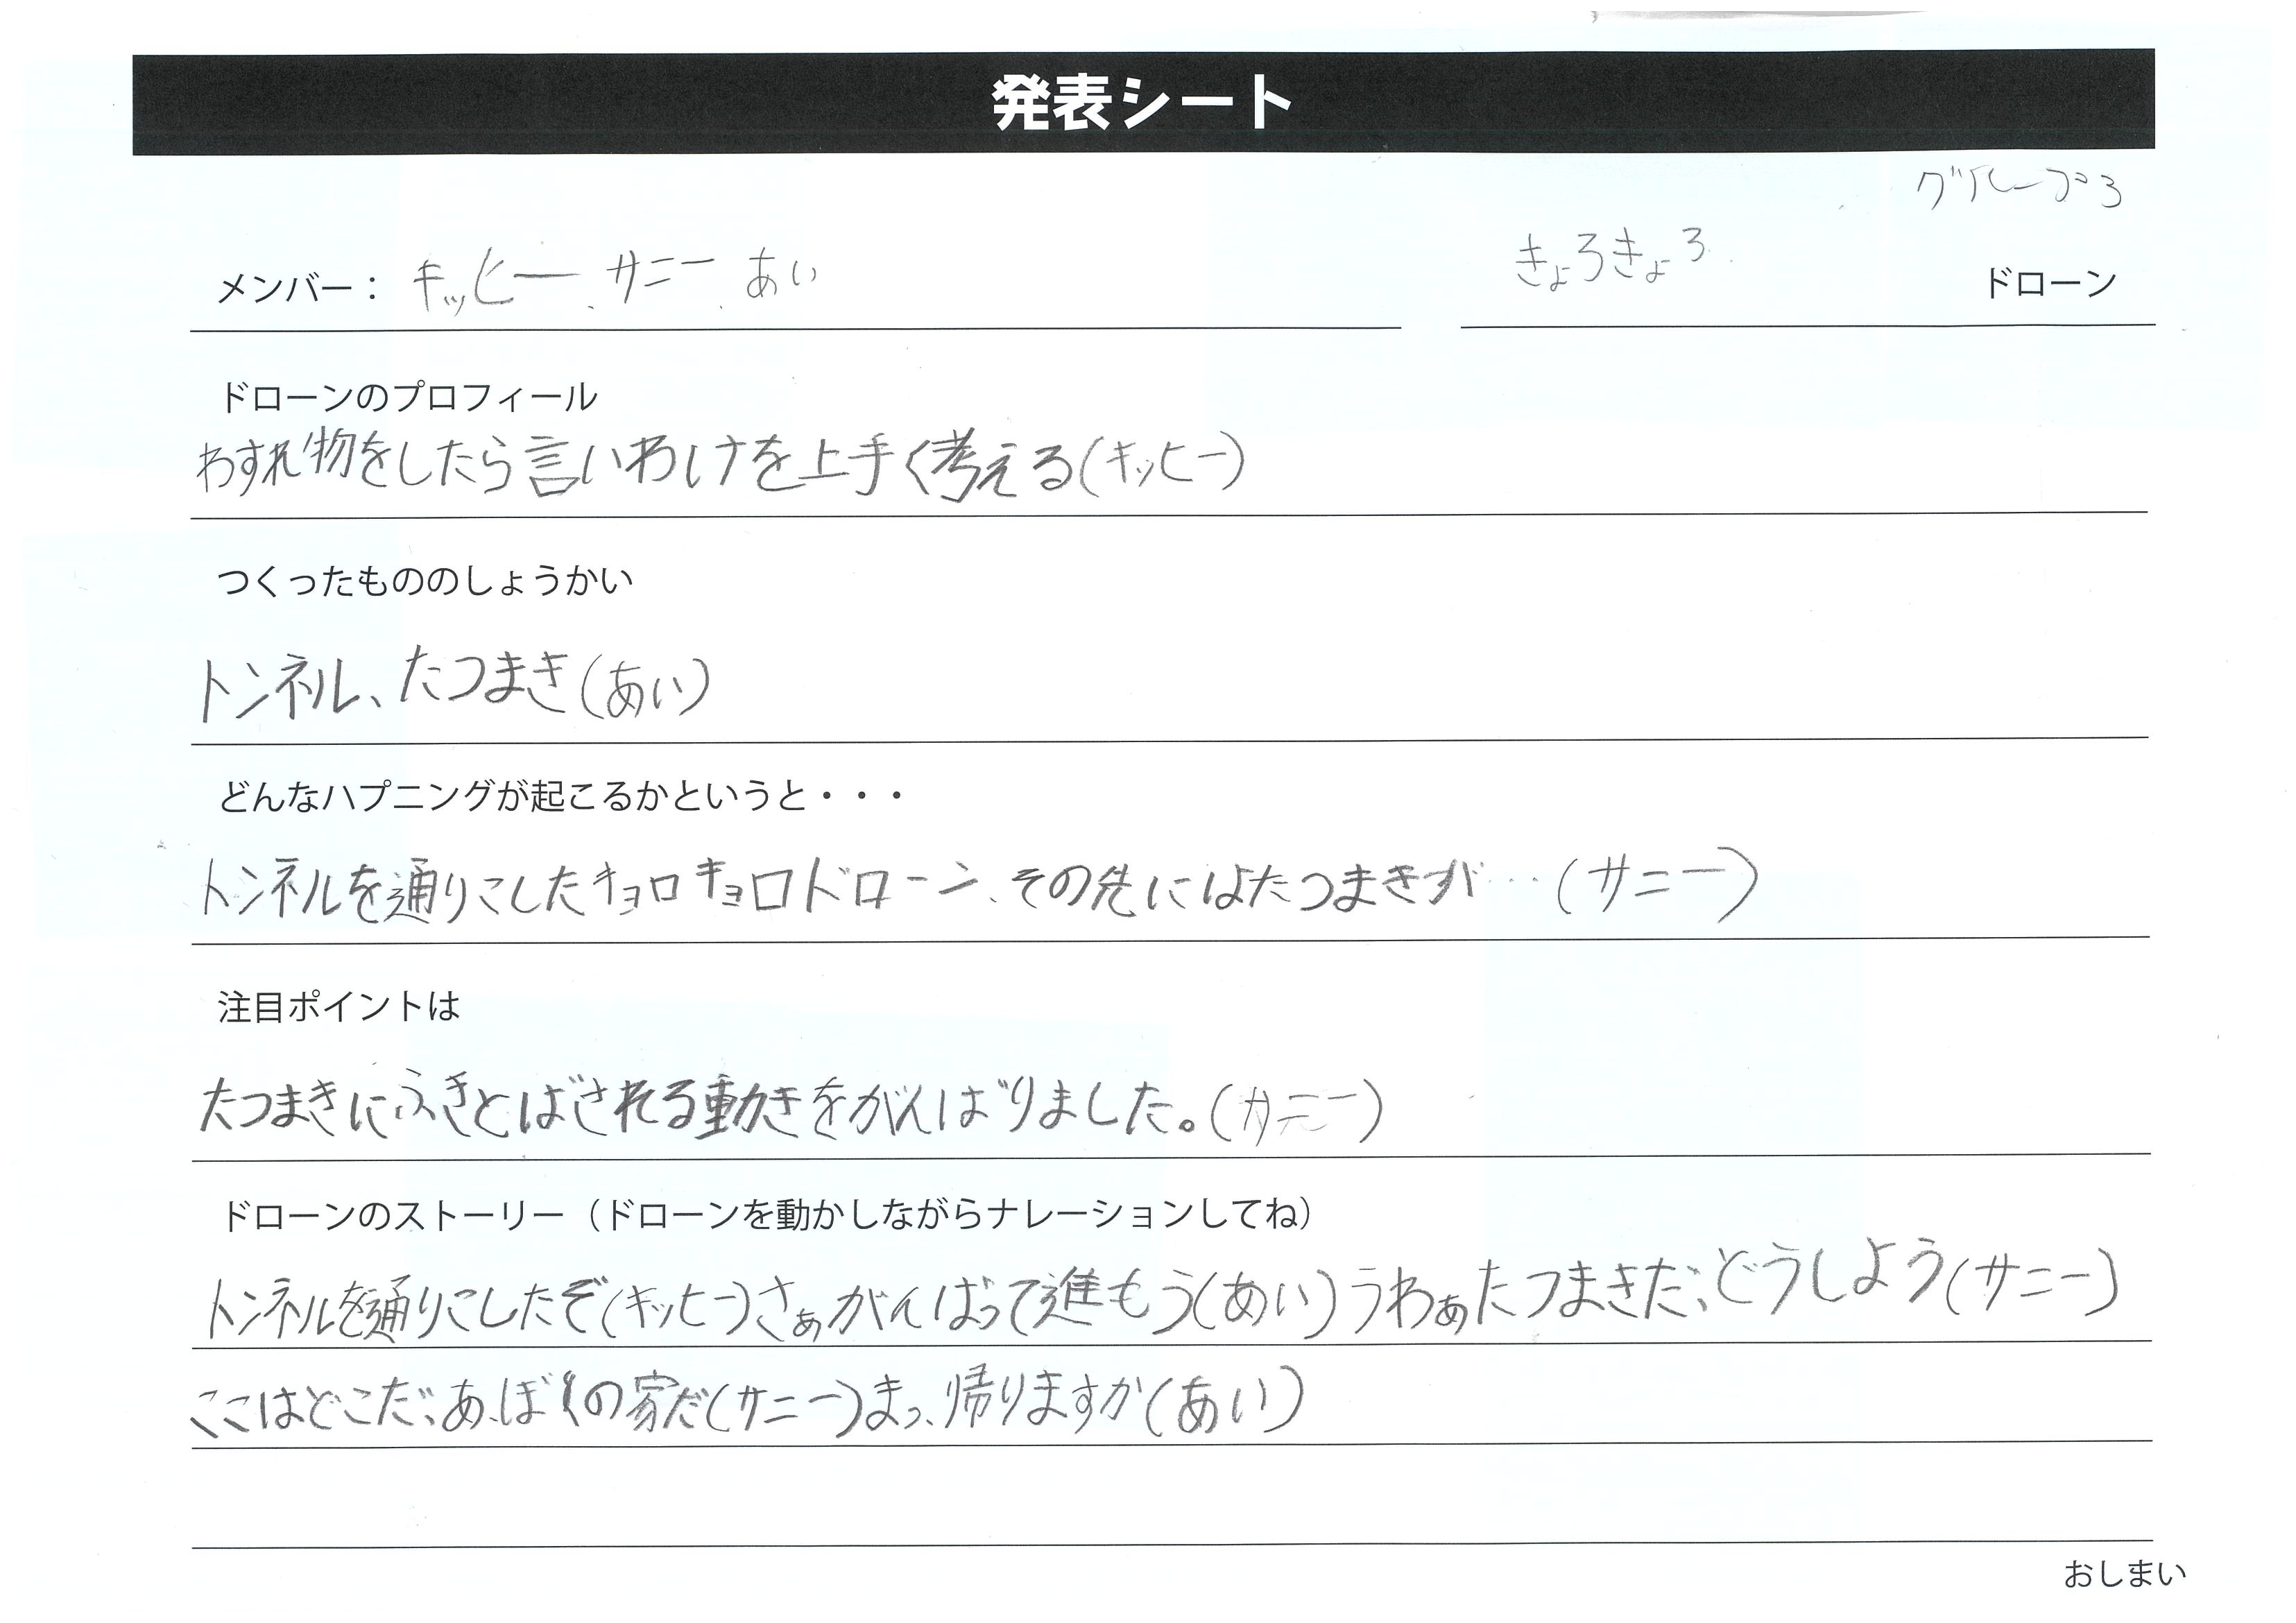 発表シート
グループ3
メンバー： キッヒー、サニー、あい
きょろきょろ ドローン
ドローンのプロフィール
わすれ物をしたら言いわけを上手く考える(キッヒー)
つくったもののしょうかい
トンネル、たつまき(あい)
どんなハプニングが起こるかというと・・・
トンネルを通りこしたキョロキョロドローン、その先にはたつまきが…(サニー)
注目ポイントは
たつまきにふきとばされる動きをがんばりました。(サニー)
ドローンのストーリー（ドローンを動かしながらナレーションしてね）
トンネルを通りこしたぞ(キッヒー)さぁがんばって進もう(あい)うわぁたつまきだ、どうしよう(サニー)
ここはどこだ、あ、ぼくの家だ(サニー)まっ、帰りますか(あい)
おしまい